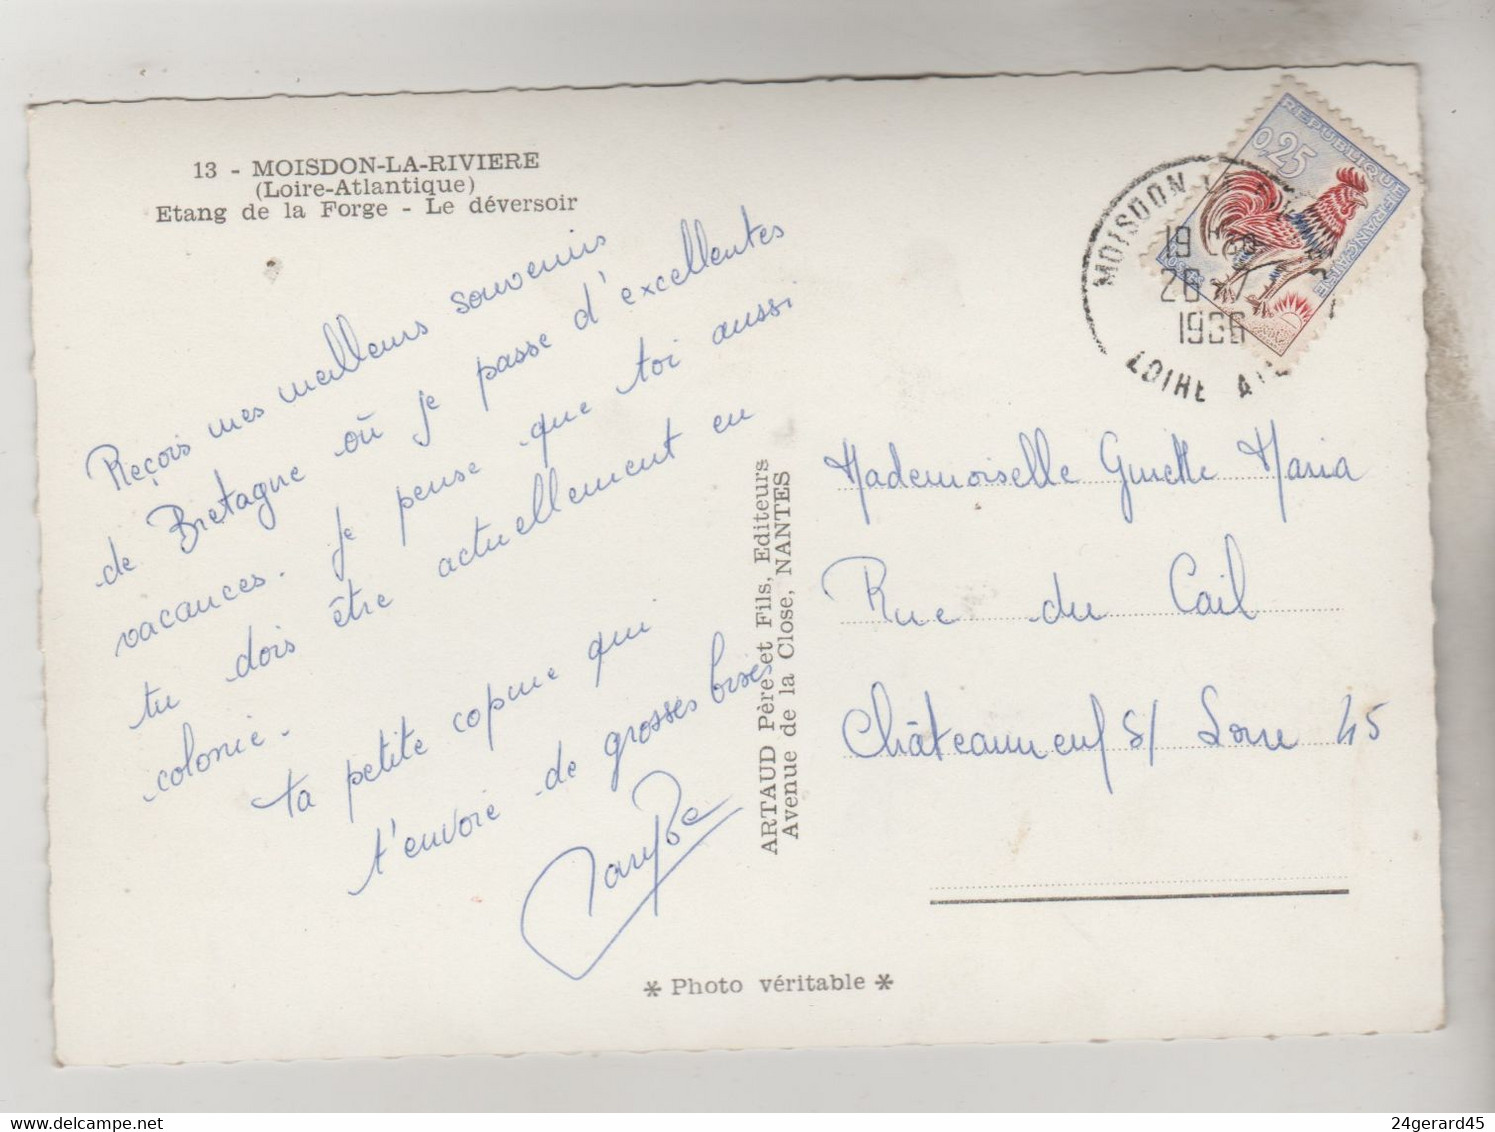 13 - MOISDON-LA-RIVIERE
(Loire-Atlantique)
Etang de la Forge - Le déversoir
Reçois mes meilleurs souvenirs
de Bretagne où je passe d'excellentes
vacances. Je pense que toi aussi
tu dois être actuellement en
colonie.
ta petite copine qui
t'envoie de grosses bises
ARTAUD Père et Fils, Editeurs
Avenue de la Close, NANTES
REPUBLIQUE FRANÇAISE
0,25
MOISDON
19 H
26 7
1966
LOIRE
Mademoiselle Maria
Rue du Cail
Châteauneuf s/ Loire 45
* Photo véritable *
24gerard45